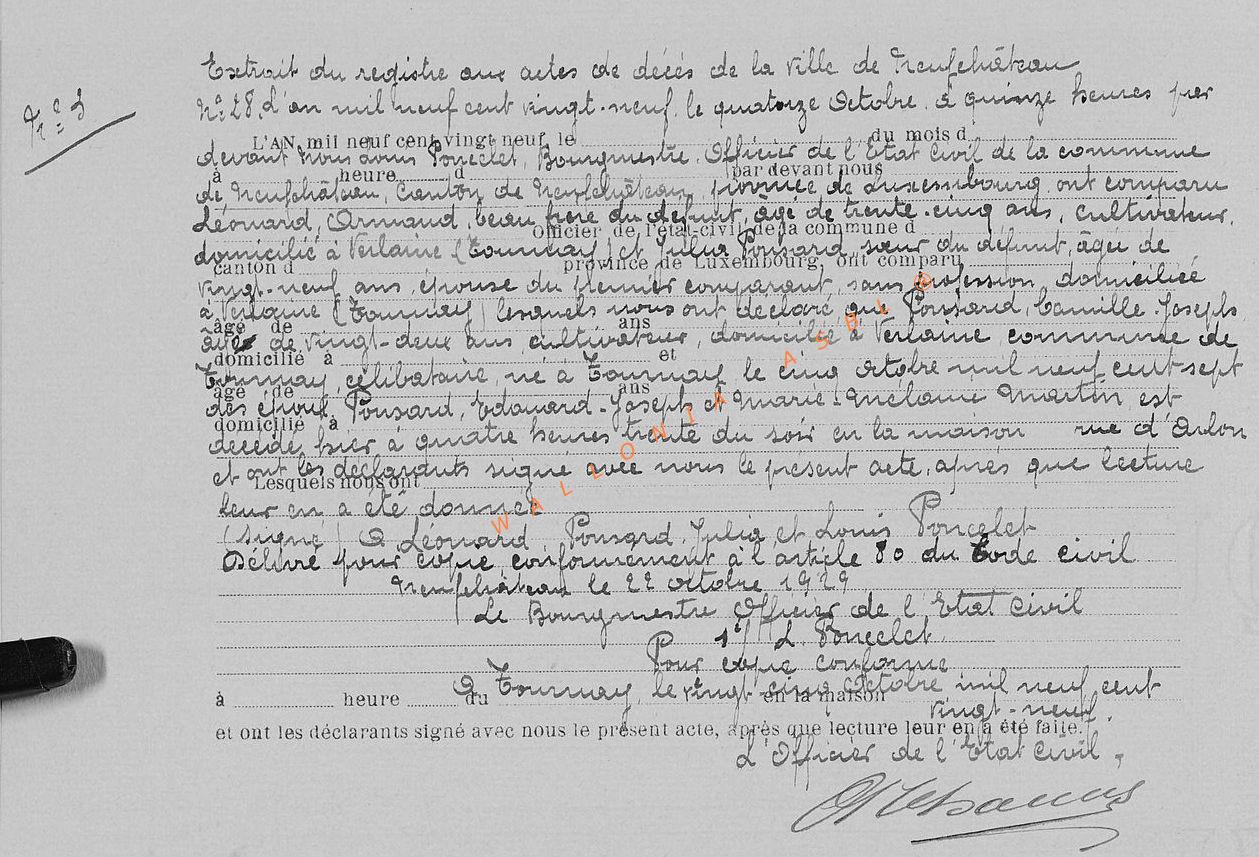 Extrait du registre aux actes de décès de la ville de Neufchâteau
N° 28. L'an mil neuf cent vingt-neuf, le quatorze Octobre, à quinze heures par
L'AN mil neuf cent vingt neuf, le du mois d
devant nous Louis Poncelet, Bourgmestre, Officier de l'Etat Civil de la commune
à heure d par devant nous
de Neufchâteau, Canton de Neufchâteau, province de Luxembourg, ont comparu
Léonard, Armand, beau frère du défunt, âgé de trente-cinq ans, cultivateur,
Officier de l'état-civil de la commune d
domicilié à Verlaine (Tournay) et Julia Ponsard, sœur du défunt, âgée de
canton d province de Luxembourg, ont comparu
vingt-neuf ans, épouse du premier comparant, sans profession domiciliée
à Verlaine (Tournay) lesquels nous ont déclaré que Ponsard, Camille-Joseph,
âgé de ans
âgé de vingt-deux ans, cultivateur, domicilié à Verlaine commune de
domicilié à et
Tournay, célibataire, né à Tournay le cinq octobre mil neuf cent sept
âgé de ans
des époux Ponsard, Edouard-Joseph et Marie-Mélanie Martin, est
domicilié à
décédé hier à quatre heures trente du soir en la maison rue d'Arlon
et ont les déclarants signé avec nous le présent acte, après que lecture
Lesquels nous ont
leur en a été donnée
(signé) A. Léonard, Ponsard Julia et Louis Poncelet
Délivré pour copie conformément à l'article 80 du Code civil
Neufchâteau le 22 octobre 1929
Le Bourgmestre Officier de l'Etat Civil
s/ L. Poncelet
Pour copie conforme
A Tournay, le vingt-cinq Octobre mil neuf cent
à heure du en la maison
vingt-neuf.
et ont les déclarants signé avec nous le présent acte, après que lecture leur en a été faite.
L'Officier de l'Etat Civil,
WALLONIA ASBL ©